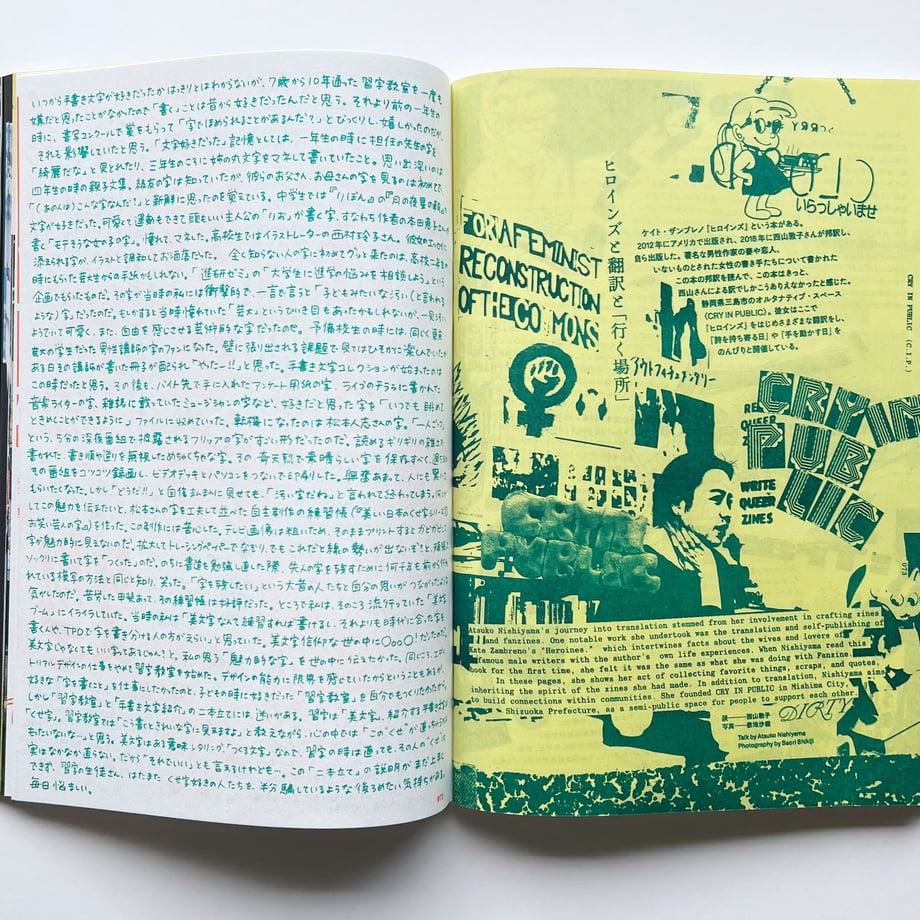 いつから手書き文字が好きだったかはっきりとはわからないが、7歳から10年通った習字教室を一度も
嫌だと思ったことがなかったので「書く」ことは昔から好きだったんだと思う。それより前の一年生の
時に、書写コンクールで賞をもらって「字でほめられることがあるんだ?」とびっくりし、嬉しかったのだが
それも影響していたと思う。「文字好きだった」記憶としては、一年生の時に担任の先生の字を
「綺麗だな」と見とれたり、三年生のころに姉の丸文字をマネして書いていたこと。思い出深いのは
四年生の時の親子文集。級友の字は知っていたが、彼らのお父さん、お母さんの字を見るのは初めて
文字が好きだった。可愛くて運動もできて頭もいい主人公の「りお」が書く字、すなわち作者の本田恵子さんが
書く「モテそうな女の子の字」。憧れて、マネした。高校生ではイラストレーターの西村玲子さん。
添えられる字が、イラストと調和してお洒落だった。全く知らない人の字に初めてグッと来たのは、高校二年の
時にもらった芸大生からの手紙かもしれない。「進研ゼミ」の「大学生に進学の悩みを相談しよう」という
企画でもらったものだ。その字が当時の私には衝撃的で、一言で言うと「子どもみたいな汚い(と言われる
ような)字」だったのだ。もしかすると当時憧れていた「芸大」というひいき目もあったかもしれないが、一見汚い
ようでいて可愛く、また、自由を感じさせる芸術的な字だったのだ。予備校生の時には、同じく東京
芸大の学生だった男性講師の字のファンになった。壁に張り出される課題で見てはひそかに楽しんでいたが
ある日その講師が書いた冊子が配られ「やったー!!」と思った。手書き文字コレクションが始まったのは
この時だったと思う。その後も、バイト先で手に入れたアンケート用紙の字、ライブのチラシに書かれた
音楽ライターの字、雑誌に載っていたミュージシャンの字など、好きだと思った字を「いつでも眺めて
ときめくことができるように」ファイルに収めていった。転機になったのは松本人志さんの字。
という、5分の深夜番組で披露されるフリップの字がすごい形だったのだ。読めるギリギリの
書かれた、書き順や造りを無視しためちゃくちゃな字。その奇天烈で素晴らしい字を保存すべく、
その番組をコツコツ録画し、ビデオデッキとパソコンをつないでEP印刷した。興奮あまって、人にも
もらいたくなった。しかし「どうだ!!」と自信まんまんに見せても、「汚い字だね」と言われて終わってしまう。
この魅力を伝えたいと、松本さんの字を工夫して並べた自主制作の練習帳
を作った。この制作には苦心した。テレビ画像は粗いため、そのままプリントすると
字が魅力的に見えないのだ。拡大してトレーシングペーパーでなぞり、でもこれだと線の勢いが出ないぞ!と
ソックリに書いて字を「つくった」のだ。のちに書道を勉強し直した際、先人の字を残すために何千年も前から
れている模写の方法と同じと知り、笑った。「字を残したい」という大昔の人たちと自分の思いがつながった
気がしたのだ。苦労した甲斐あって、その練習帳は好評だった。ところで私は、そのころ流行っていた「美文字
ブーム」にイライラしていた。当時の私は「美文字なんて練習すれば書けるし、それよりも時代に合った字を
書く人や、TPOで字を書き分ける人の方がえらい」と思っていた。美文字信仰な世の中に〇〇〇〇!だったのだ。
美文字じゃなくてもいい字ってあるじゃん?と、私の思う「魅力的な字」を世の中に伝えたかった。同じころ、エディ
トリアルデザインの仕事をやめて習字教室を始めた。デザインの能力に限界を感じていたからということもあるが、
好きな「字を書くこと」を仕事にしたかったのと、子どもの時に好きだった「習字教室」を自分でもつくりたかった
しかし「習字教室」と「手書き文字紹介」の二本立てには、迷いがある。習字は「美文字」、紹介する手書き文字は
「くせ字」。習字教室では「こう書くときれいな字に見えますよ」と教えながら、心の中では「この"くせ"が
もたいないな…」と思う。美文字はある意味レタリング、「つくる文字」なので、習字の時は直っても、その人の"くせ"は
実はなかなか直らない。だから「それでいい」とも言えるけれども…。この「二本立て」の説明がまだ上手く
できず、習字の生徒さん、はたまたくせ字好きの人たちを、半分騙しているような後ろめたい気持ちがある。
毎日悩ましい。
072
いらっしゃいませ
ヒロインズと翻訳と「行く場所」
ケイト・ザンブレノ『ヒロインズ』という本がある。
2012年にアメリカで出版され、2018年に西山敦子さんが邦訳し、
自ら出版した。著名な男性作家の妻や恋人、
いないものとされた女性の書き手たちについて書かれた
この本の邦訳を読んで、この本はきっと、
西山さんによる訳でしかこうありえなかったと感じた。
静岡県三島市のオルタナティブ・スペース
〈CRY IN PUBLIC〉。彼女はここで
『ヒロインズ』をはじめさまざまな翻訳をし、
「詩を持ち寄る日」や「手を動かす日」を
のんびりと開催している。
CRY IN PUBLIC (C.I.P.)
FOR A FEMINIST
RECONSTRUCTION
OF THE COMMONS
CRY IN
PUB
LIC
WRITE
QUEER
ZINES
CRY IN
PUBLIC
073
Atsuko Nishiyama's journey into translation stemmed from her involvement in crafting zines
and fanzines. One notable work she undertook was the translation and self-publishing of
Kate Zambreno's "Heroines." which intertwines facts about the wives and lovers of
famous male writers with the author's own life experiences. When Nishiyama read this
book for the first time, she felt it was the same as what she was doing with Fanzine.
In those pages, she shows her art of collecting favorite things, scraps, and quotes,
inheriting the spirit of the zines she had made. In addition to translation, Nishiyama aims
to build connections within communities. She founded CRY IN PUBLIC in Nishima City,
Shizuoka Prefecture, as a semi-public space for people to support each other.
DIRTY
談 西山敦子
写真 敷地沙織
Talk by Atsuko Nishiyama
Photography by Saori Shikiji